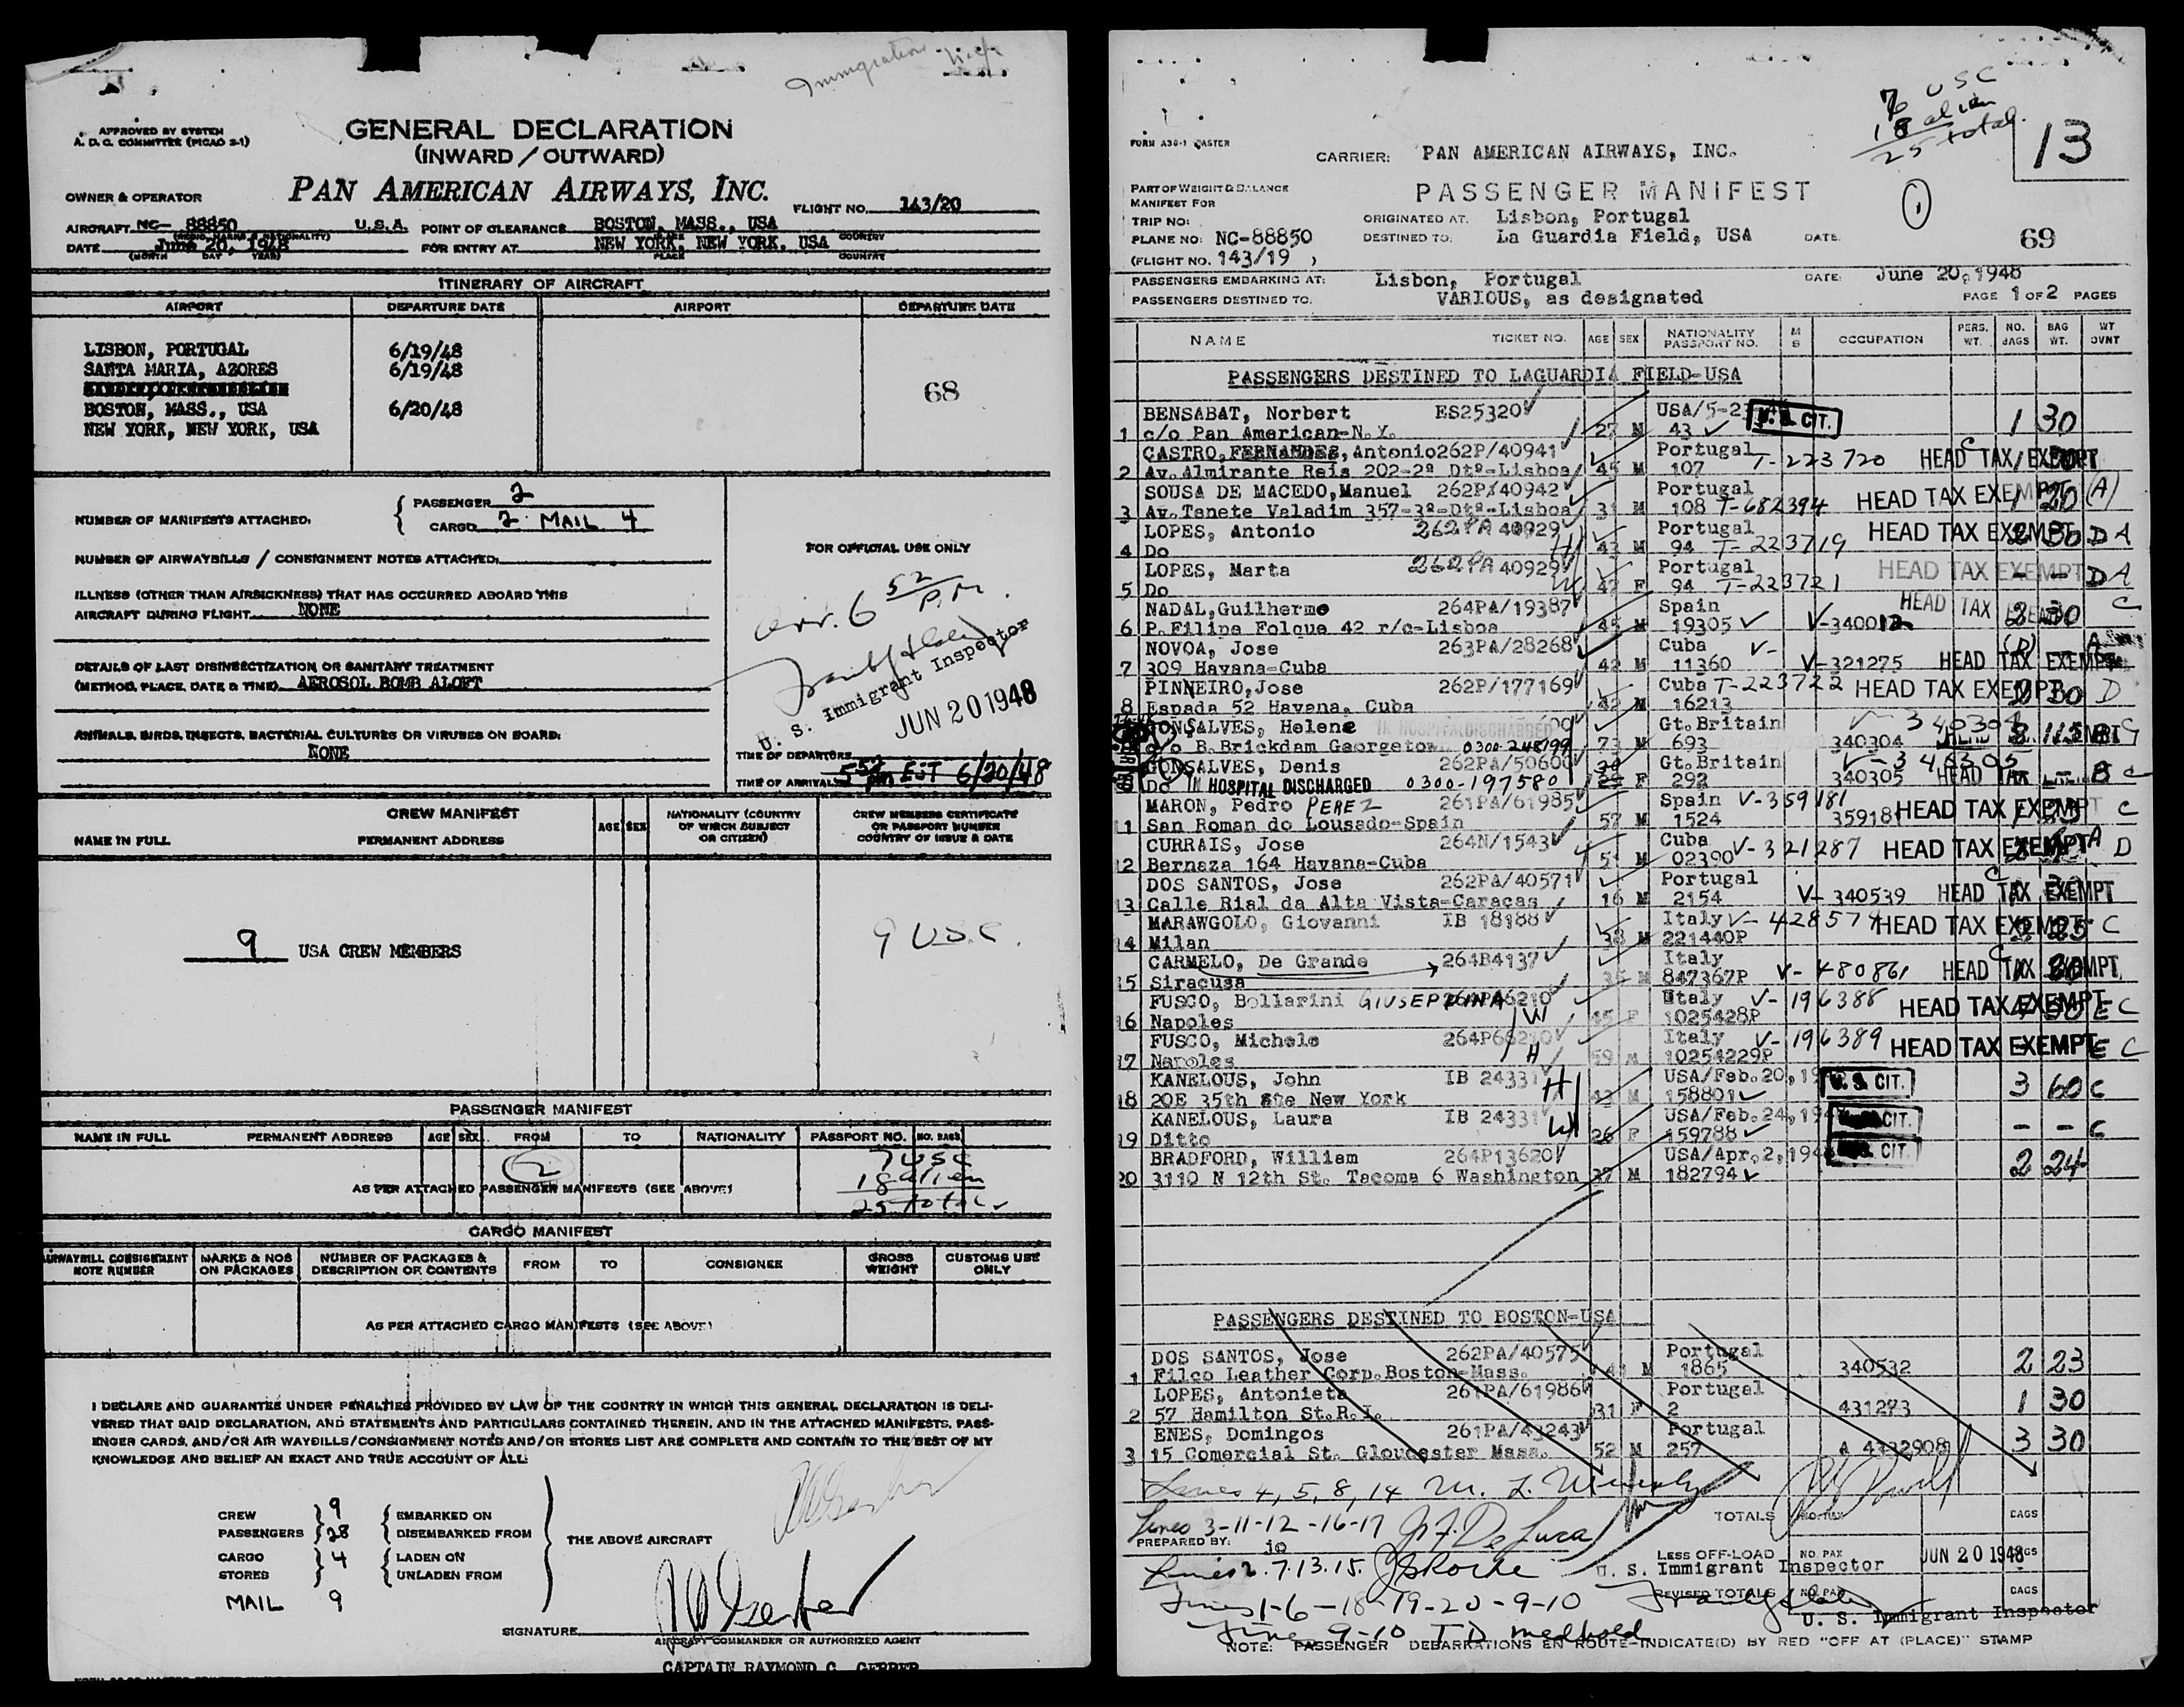 Immigration
APPROVED BY SYSTEM
A. D. C. COMMITTEE (PICAO 2-1)
GENERAL DECLARATION
(INWARD / OUTWARD)
OWNER & OPERATOR PAN AMERICAN AIRWAYS, INC. FLIGHT NO. 143/20
AIRCRAFT NC- 88850 U.S.A. POINT OF CLEARANCE BOSTON, MASS., USA
DATE June 20, 1948 FOR ENTRY AT NEW YORK, NEW YORK, USA
(MONTH DAY YEAR) PLACE COUNTRY
ITINERARY OF AIRCRAFT
AIRPORT DEPARTURE DATE AIRPORT DEPARTURE DATE
LISBON, PORTUGAL 6/19/48
SANTA MARIA, AZORES 6/19/48
68
BOSTON, MASS., USA 6/20/48
NEW YORK, NEW YORK, USA
NUMBER OF MANIFESTS ATTACHED. PASSENGER 2
CARGO 2 MAIL 4
NUMBER OF AIRWAYBILLS / CONSIGNMENT NOTES ATTACHED:
FOR OFFICIAL USE ONLY
ILLNESS (OTHER THAN AIRSICKNESS) THAT HAS OCCURRED ABOARD THIS
AIRCRAFT DURING FLIGHT. NONE
arr. 6 52 P.M.
DETAILS OF LAST DISINSECTIZATION OR SANITARY TREATMENT
(METHOD, PLACE, DATE & TIME). AEROSOL BOMB ALOFT
U. S. Immigrant Inspector
JUN 20 1948
ANIMALS, BIRDS, INSECTS, BACTERIAL CULTURES OR VIRUSES ON BOARD:
NONE
TIME OF DEPARTURE
TIME OF ARRIVAL 5 52 pm EST 6/20/48
CREW MANIFEST
NAME IN FULL PERMANENT ADDRESS AGE SEX NATIONALITY (COUNTRY OF WHICH SUBJECT OR CITIZEN) CREW MEMBERS CERTIFICATE OR PASSPORT NUMBER COUNTRY OF ISSUE & DATE
9 USA CREW MEMBERS 9 USC.
PASSENGER MANIFEST
NAME IN FULL PERMANENT ADDRESS AGE SEX FROM TO NATIONALITY PASSPORT NO. NO. BAGS
2 7 USC
AS PER ATTACHED PASSENGER MANIFESTS (SEE ABOVE) 18 alien
25 total
CARGO MANIFEST
AIRWAYBILL CONSIGNMENT NOTE NUMBER MARKS & NOS ON PACKAGES NUMBER OF PACKAGES & DESCRIPTION OF CONTENTS FROM TO CONSIGNEE GROSS WEIGHT CUSTOMS USE ONLY
AS PER ATTACHED CARGO MANIFESTS (SEE ABOVE)
I DECLARE AND GUARANTEE UNDER PENALTIES PROVIDED BY LAW OF THE COUNTRY IN WHICH THIS GENERAL DECLARATION IS DELI-
VERED THAT SAID DECLARATION, AND STATEMENTS AND PARTICULARS CONTAINED THEREIN, AND IN THE ATTACHED MANIFESTS, PASS-
ENGER CARDS, AND/OR AIR WAYBILLS/CONSIGNMENT NOTES AND/OR STORES LIST ARE COMPLETE AND CONTAIN TO THE BEST OF MY
KNOWLEDGE AND BELIEF AN EXACT AND TRUE ACCOUNT OF ALL:
CREW 9 EMBARKED ON
PASSENGERS 28 DISEMBARKED FROM
THE ABOVE AIRCRAFT
CARGO 4 LADEN ON
STORES UNLADEN FROM
MAIL 9
SIGNATURE
AIRCRAFT COMMANDER OR AUTHORIZED AGENT
CAPTAIN RAYMOND C. GERBER
7 USC
18 alien
25 total.
13
FORM A30-1 MASTER
CARRIER: PAN AMERICAN AIRWAYS, INC.
PART OF WEIGHT & BALANCE
MANIFEST FOR
PASSENGER MANIFEST
1
TRIP NO: ORIGINATED AT: Lisbon, Portugal
PLANE NO: NC-88850 DESTINED TO: La Guardia Field, USA DATE. 69
(FLIGHT NO. 143/19 )
PASSENGERS EMBARKING AT: Lisbon, Portugal DATE: June 20, 1948
PASSENGERS DESTINED TO. VARIOUS, as designated PAGE 1 OF 2 PAGES
NAME TICKET NO. AGE SEX NATIONALITY PASSPORT NO. M S OCCUPATION PERS. WT. NO. BAGS BAG WT. WT OVNT
PASSENGERS DESTINED TO LAGUARDIA FIELD-USA
BENSABAT, Norbert ES25320 USA/5-2 U.S. CIT. 1 30
1 c/o Pan American-N.Y. 27 M 43
CASTRO, FERNANDES, Antonio 262P/40941 Portugal T-223720 HEAD TAX EXEMPT C
2 Av. Almirante Reis 202-2º Dtº-Lisboa 45 M 107
SOUSA DE MACEDO, Manuel 262P/40942 Portugal HEAD TAX EXEMPT 1 20 (A)
3 Av. Tenete Valadim 357-3º-Dtº-Lisboa 31 M 108 T-682394
LOPES, Antonio 262PA 40929 Portugal HEAD TAX EXEMPT 2 30 D A
4 Do H 43 M 94 T-223719
LOPES, Marta 262PA 40929 Portugal HEAD TAX EXEMPT - - D A
5 Do W 47 F 94 T-223721
NADAL, Guilherme 264PA/19387 Spain HEAD TAX EXEMPT 2 30 C
6 P. Filipa Folque 42 r/c-Lisboa 45 M 19305 V-340012
NOVOA, Jose 263PA/28268 Cuba V- (D) A
7 309 Havana-Cuba 42 M 11360 V-321275 HEAD TAX EXEMPT
PINNEIRO, Jose 262P/177169 Cuba T-223722 HEAD TAX EXEMPT 30 D
8 Espada 52 Havana, Cuba 42 M 16213
GONSALVES, Helene IN HOSPITAL DISCHARGED Gt. Britain V-340304
c/o B. Brickdam Georgetown 0300-248199 73 M 693 340304
GONSALVES, Denis 262PA/50600 Gt. Britain
Do IN HOSPITAL DISCHARGED 0300-197580 F 292 340305 HEAD TAX C
MARON, Pedro PEREZ 261PA/61985 Spain V-359181 HEAD TAX EXEMPT C
11 San Roman do Lousado-Spain 57 M 1524 359181
CURRAIS, Jose 264N/1543 Cuba V-321287 HEAD TAX EXEMPT A D
12 Bernaza 164 Havana-Cuba 51 M 02390
DOS SANTOS, Jose 262PA/40571 Portugal C
13 Calle Rial da Alta Vista-Caracas 16 M 2154 V-340539 HEAD TAX EXEMPT
MARAWGOLO, Giovanni IB 18188 Italy V-428574 HEAD TAX EXEMPT 25 C
14 Milan 38 M 221440P
CARMELO, De Grande 264B4137 Italy C
15 Siracusa 35 M 847367P V-480861 HEAD TAX EXEMPT
FUSCO, Bollarini GIUSEPPINA 264P66210 Italy V-196388 HEAD TAX EXEMPT E C
16 Napoles W 45 F 1025428P
FUSCO, Michele 264P66210 Italy V-196389 HEAD TAX EXEMPT E C
17 Napoles H 59 M 10254229P
KANELOUS, John IB 24331 H USA/Feb.20,19 U.S. CIT. 3 60 C
18 20E 35th Ste New York 43 M 158801
KANELOUS, Laura IB 24331 W USA/Feb.24,194 U.S. CIT. - - C
19 Ditto 26 F 159788
BRADFORD, William 264P13620 USA/Apr.2,194 U.S. CIT. 2 24
20 3110 N 12th St. Tacoma 6 Washington 37 M 182794
PASSENGERS DESTINED TO BOSTON-USA
DOS SANTOS, Jose 262PA/40575 Portugal 2 23
1 Filco Leather Corp. Boston-Mass. 41 M 1865 340532
LOPES, Antonieta 261PA/61986 Portugal 1 30
2 57 Hamilton St. R.I. 31 F 2 431273
ENES, Domingos 261PA/41243 Portugal 3 30
3 15 Comercial St. Gloucester Mass. 52 M 257 A 4332908
Lines 4, 5, 8, 14 M. L.
TOTALS NO. PAX BAGS
Lines 3-11-12-16-17 J. F. De Luca
PREPARED BY: jo
LESS OFF-LOAD NO. PAX BAGS
Lines 2.7.13.15. J S Roche U. S. Immigrant Inspector JUN 20 1948
REVISED TOTALS NO. PAX BAGS
Lines 1-6-18-19-20-9-10
U. S. Immigrant Inspector
Line 9-10 T.D. med hold
NOTE: PASSENGER DEBARKATIONS EN ROUTE-INDICATE(D) BY RED "OFF AT (PLACE)" STAMP